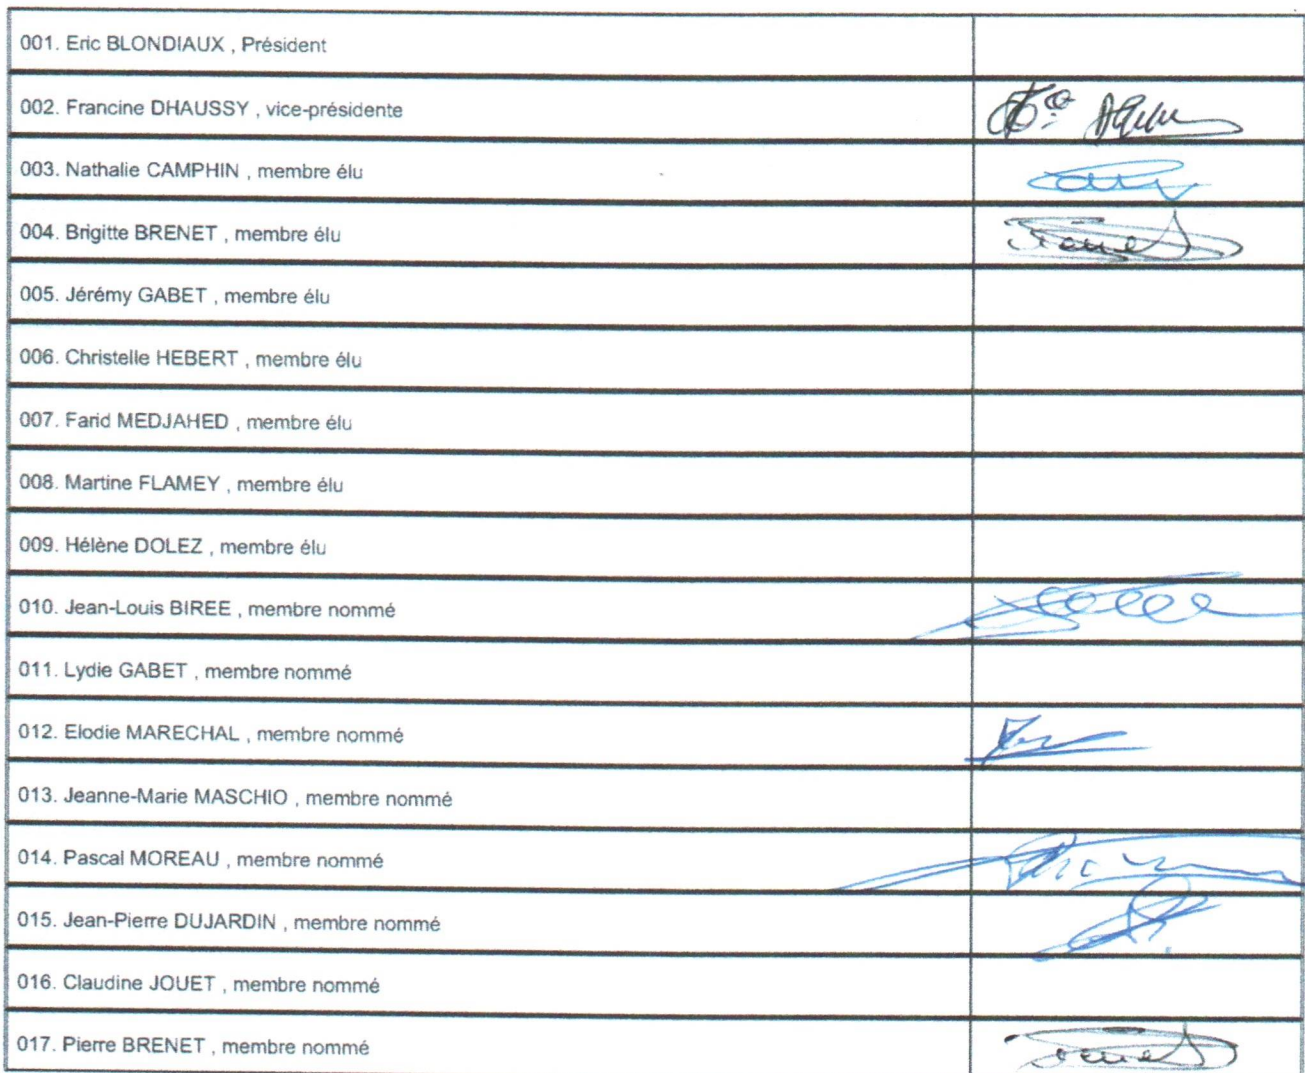 001. Eric BLONDIAUX , Président
002. Francine DHAUSSY , vice-présidente
003. Nathalie CAMPHIN , membre élu
004. Brigitte BRENET , membre élu
005. Jérémy GABET , membre élu
006. Christelle HEBERT , membre élu
007. Farid MEDJAHED , membre élu
008. Martine FLAMEY , membre élu
009. Hélène DOLEZ , membre élu
010. Jean-Louis BIREE , membre nommé
011. Lydie GABET , membre nommé
012. Elodie MARECHAL , membre nommé
013. Jeanne-Marie MASCHIO , membre nommé
014. Pascal MOREAU , membre nommé
015. Jean-Pierre DUJARDIN , membre nommé
016. Claudine JOUET , membre nommé
017. Pierre BRENET , membre nommé